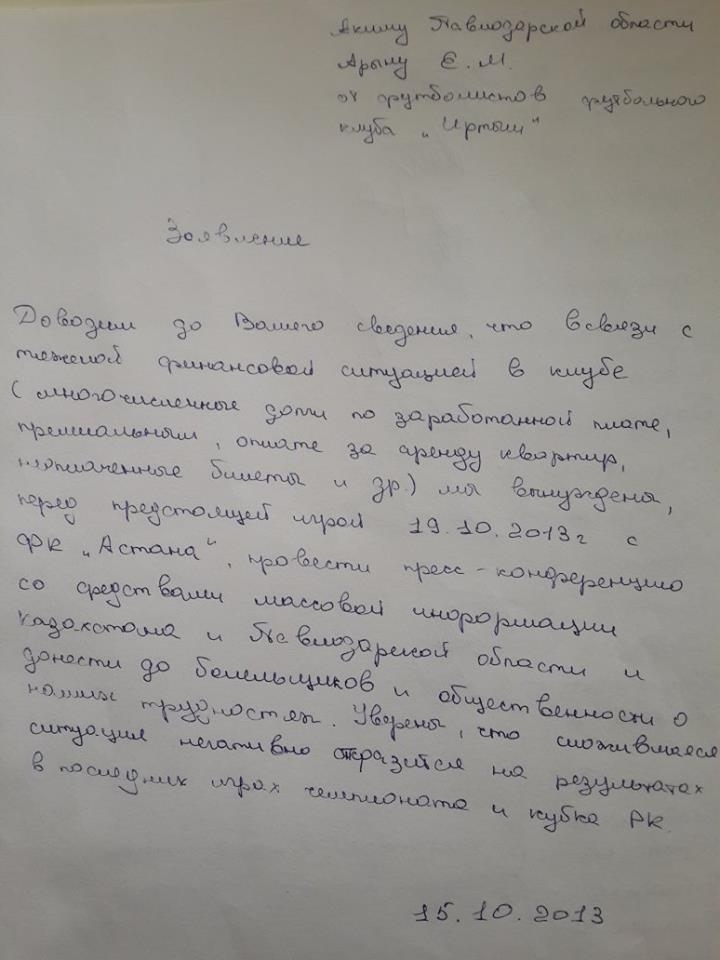 Акиму Павлодарской области
Арыну Е.М.
от футболистов футбольного
клуба „Иртыш"
Заявление
Доводим до Вашего сведения, что всвязи с
тяжелой финансовой ситуацией в клубе
(многочисленные долги по заработанной плате,
премиальным, оплате за аренду квартир,
неоплаченные билеты и др.) мы вынуждены,
перед предстоящей игрой 19.10.2013г с
ФК „Астана", провести пресс-конференцию
со средствами массовой информации
Казахстана и Павлодарской области и
донести до болельщиков и общественности о
наших трудностях. Уверены, что сложившаяся
ситуация негативно отразится на результатах
в последних играх чемпионата и кубка РК.
15.10.2013